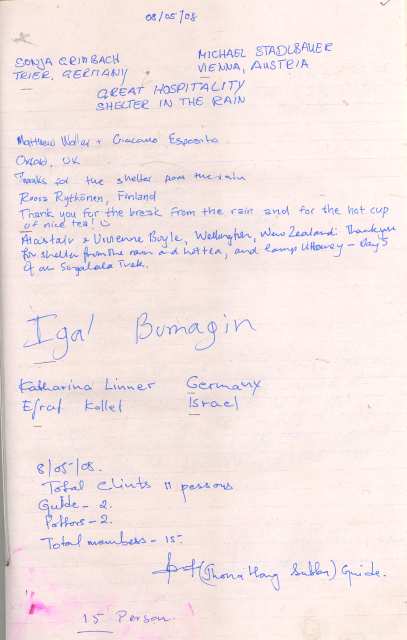 08/05/08
SONJA GRIMBACH
TRIER, GERMANY
MICHAEL STADLBAUER
VIENNA, AUSTRIA
GREAT HOSPITALITY
SHELTER IN THE RAIN
Matthew Waller + Giacomo Esposito
Oxford, UK
Thanks for the shelter from the rain
Roosa Rytkönen, Finland
Thank you for the break from the rain and for the hot cup
of nice tea! ☺
Alastair & Vivienne Boyle, Wellington, New Zealand: Thankyou
for shelter from the rain and hot tea, and lamp – Day 5
of our Singalila Trek.
Igal Bumagin
Katharina Linner Germany
Efrat Kollet Israel
8/05/08.
Total Clints 11 persons
Guide – 2.
Potters – 2.
Total members – 15.
Subba) Guide.
15 Person.